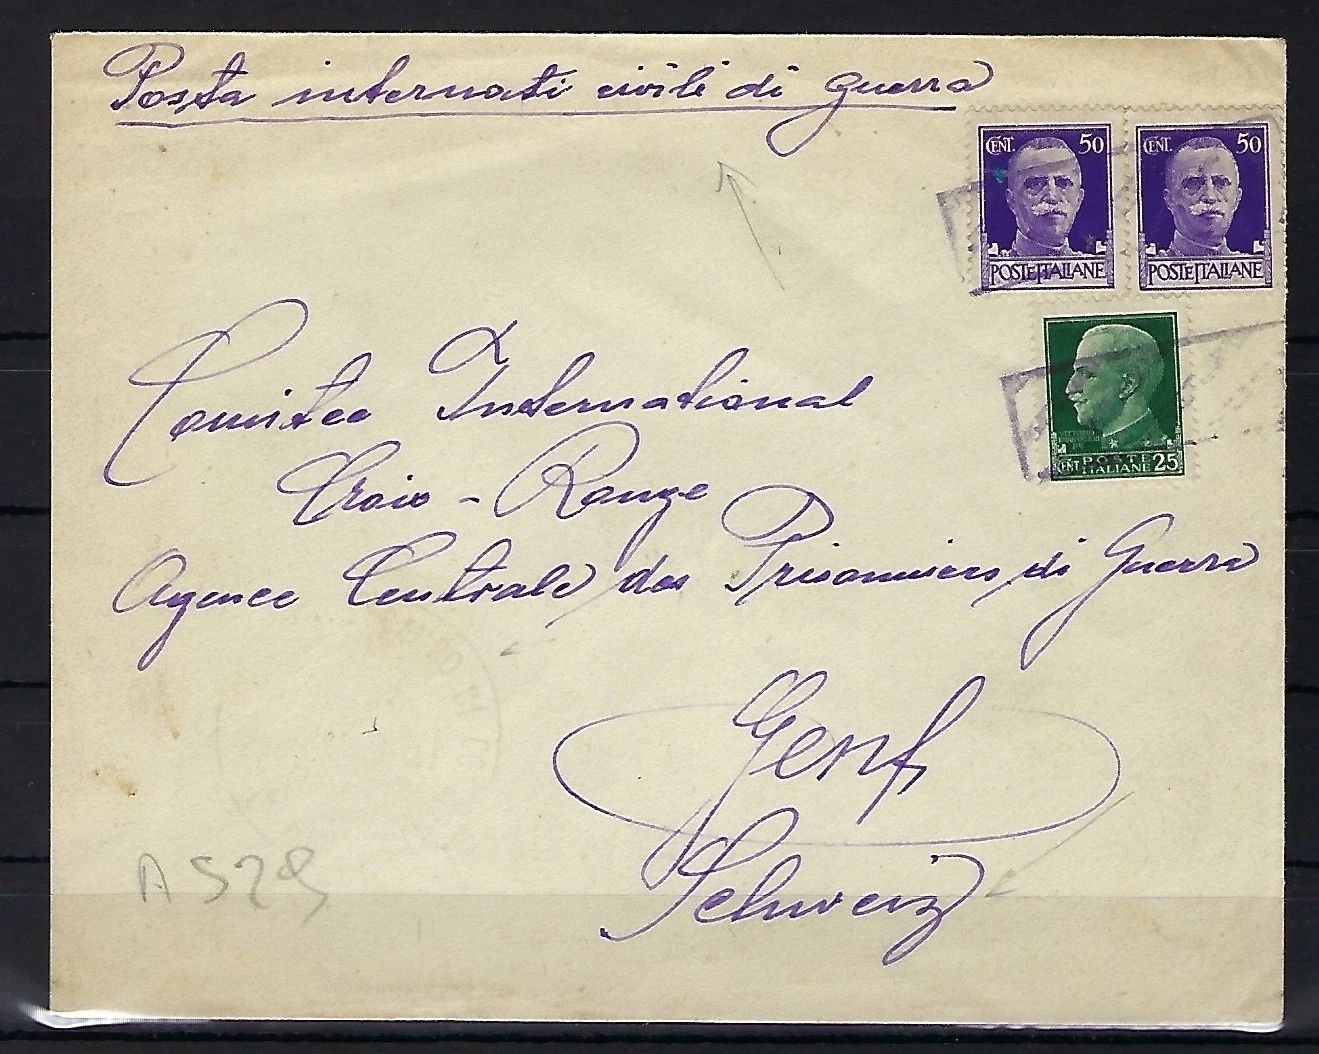 Posta internati civili di guerra
CENT. 50
CENT. 50
POSTE ITALIANE
POSTE ITALIANE
CENT. POSTE ITALIANE 25
Comitee International
Croix - Rouge
Agence Centrale des Prisonniers di Guerra
Genf
Schweiz
A 529